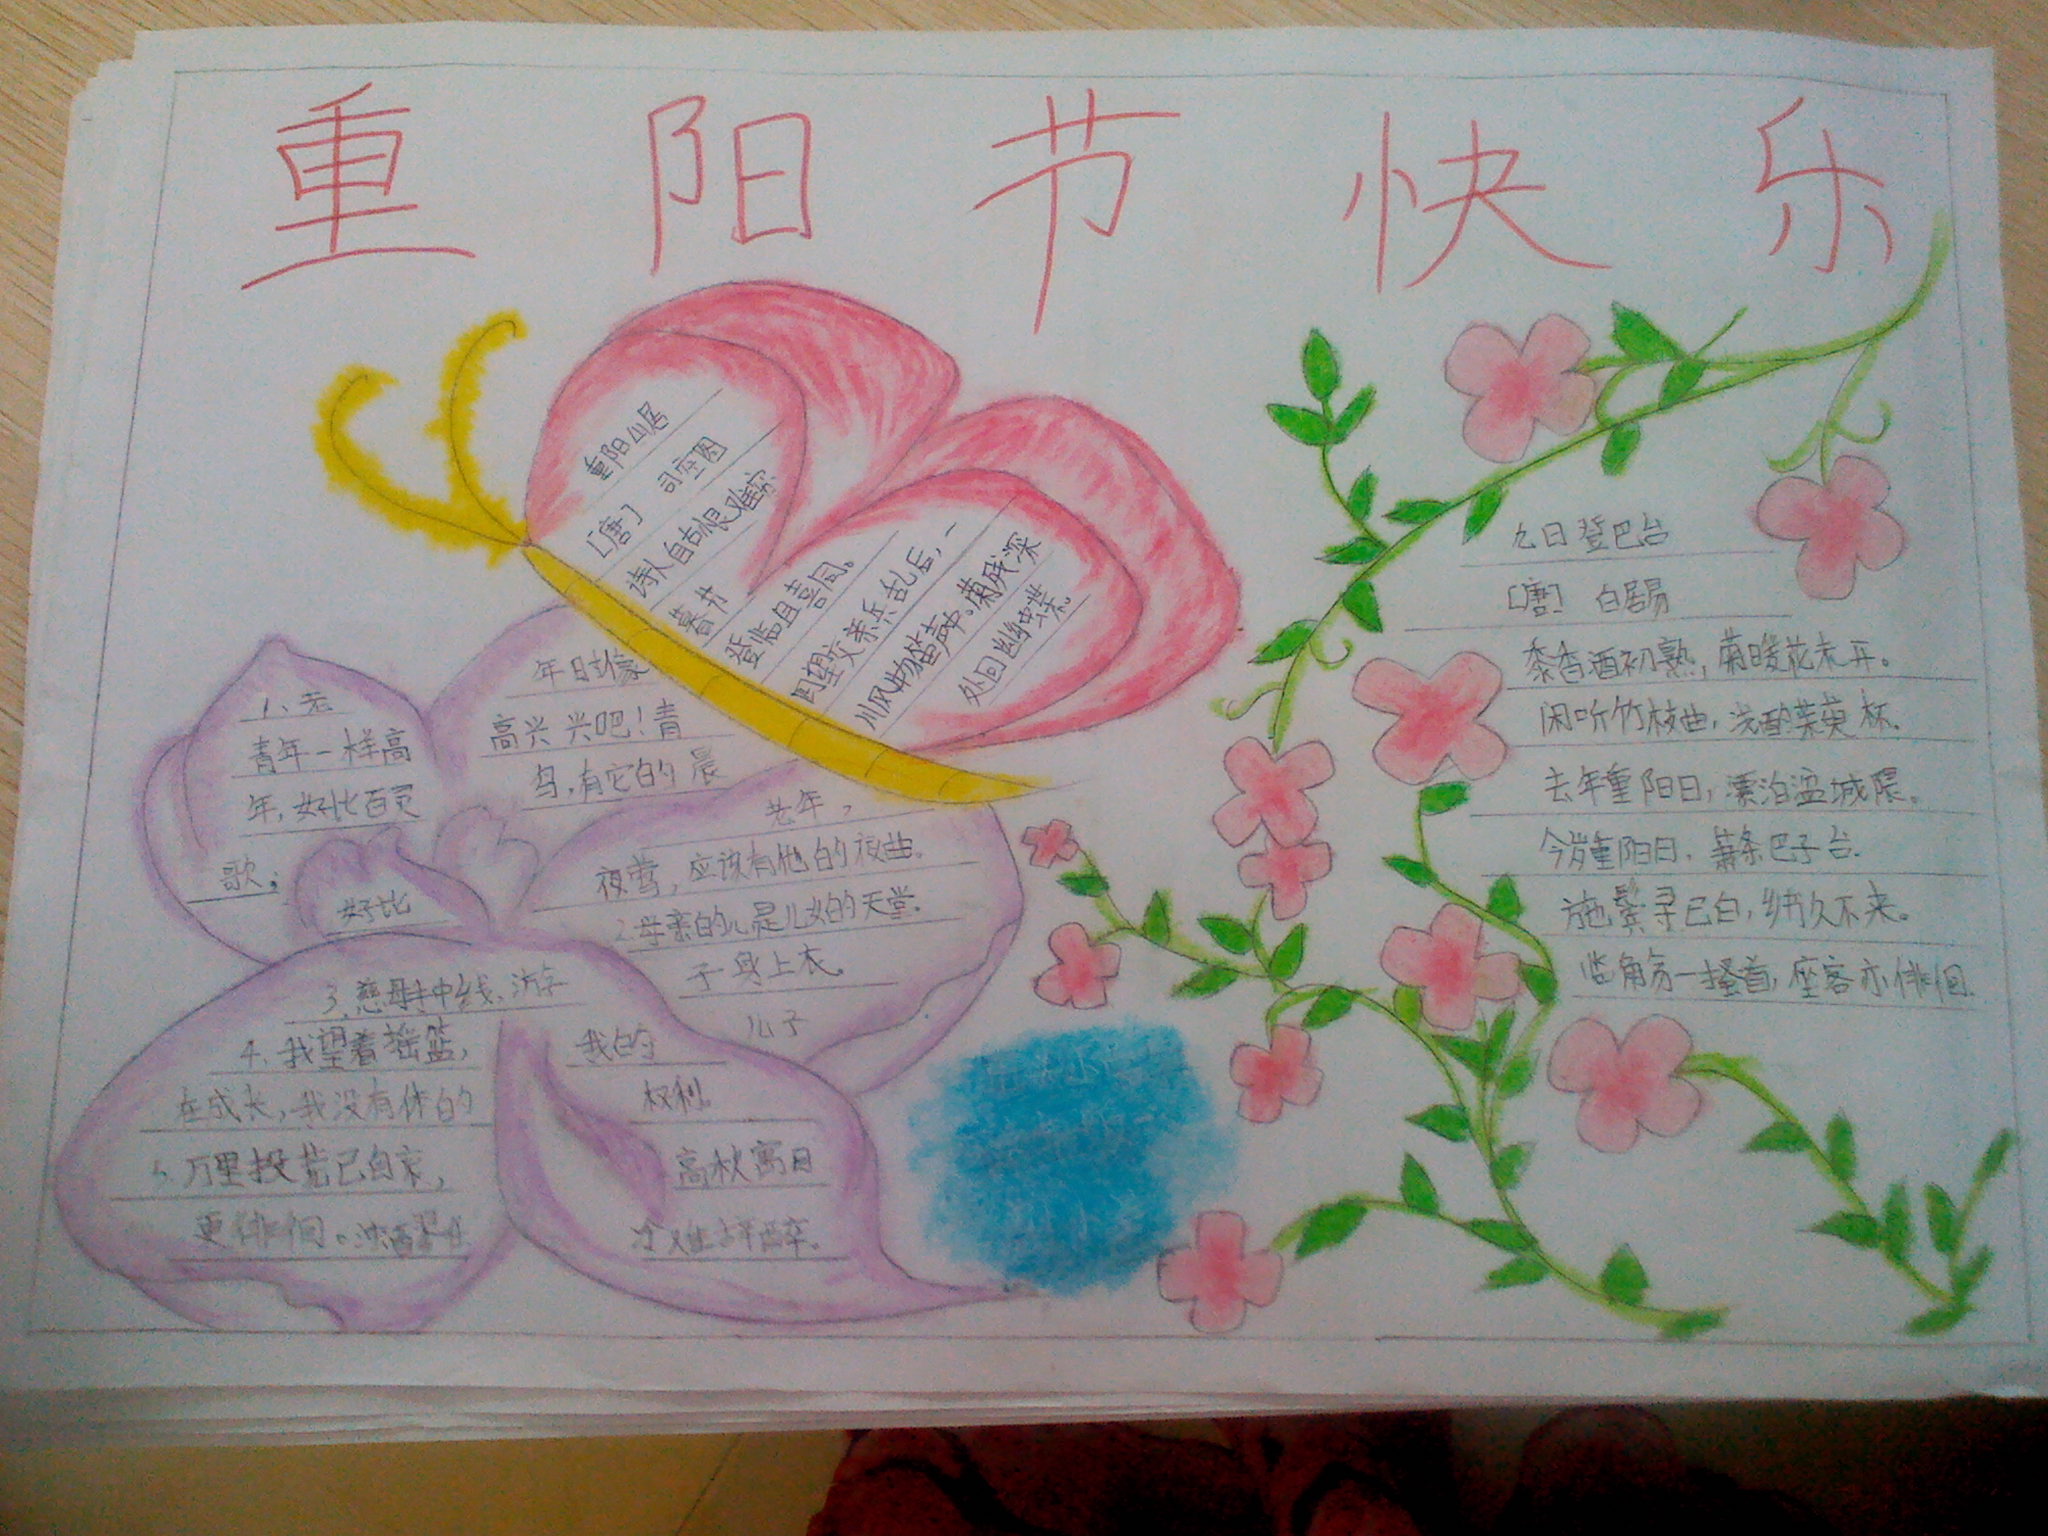 重阳节快乐
重阳山居
[唐] 司空图
诗人自古恨难穷
暮节
登临且喜同。
四望交亲兵乱后,一
川风物笛声中。菊残深
处回幽蝶。
1、老
青年一样高
年,好比百灵
歌;
好比
年日对像
高兴兴吧!青
鸟,有它的晨
老年,
夜莺,应该有他的夜曲。
2.母亲的心是儿女的天堂。
子身上衣。
3、慈母手中线、游
4.我望着摇篮,
儿子
在成长,我没有休的
我的
权利。
5.万里投荒已自哀,
高秋寓目
更徘徊。浊酒
九日登巴台
[唐] 白居易
黍香酒初熟,菊暖花未开。
闲听竹枝曲,浅酌茱萸杯。
去年重阳日,漂泊湓城隈。
今岁重阳日,萧条巴子台.
施鬓寻已白,乡书久不来。
临角务一搔首,座客亦徘徊.